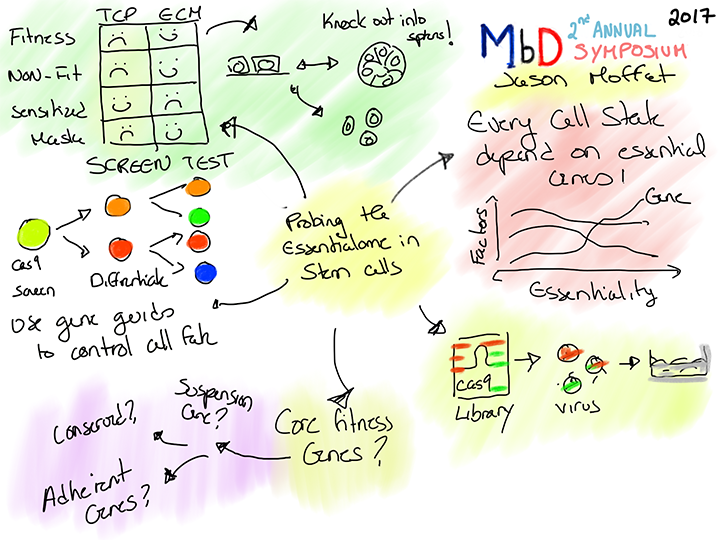 TCP ECM
Fitness
Non-Fit
Sensitized
SCREEN TEST
Knock out into
MbD 2nd ANNUAL
SYMPOSIUM
2017
Jason Moffat
Every Cell State
depend on essential
Genes!
Gene
Factors
Essentiality
Probing the
Essentialome in
Stem cells
Cas9
Screen
Differentiate
Use gene guids
to control cell fate
cas9
Library
Virus
Core fitness
Genes?
Suspension
Gene?
Conserved?
Adherent
Genes?